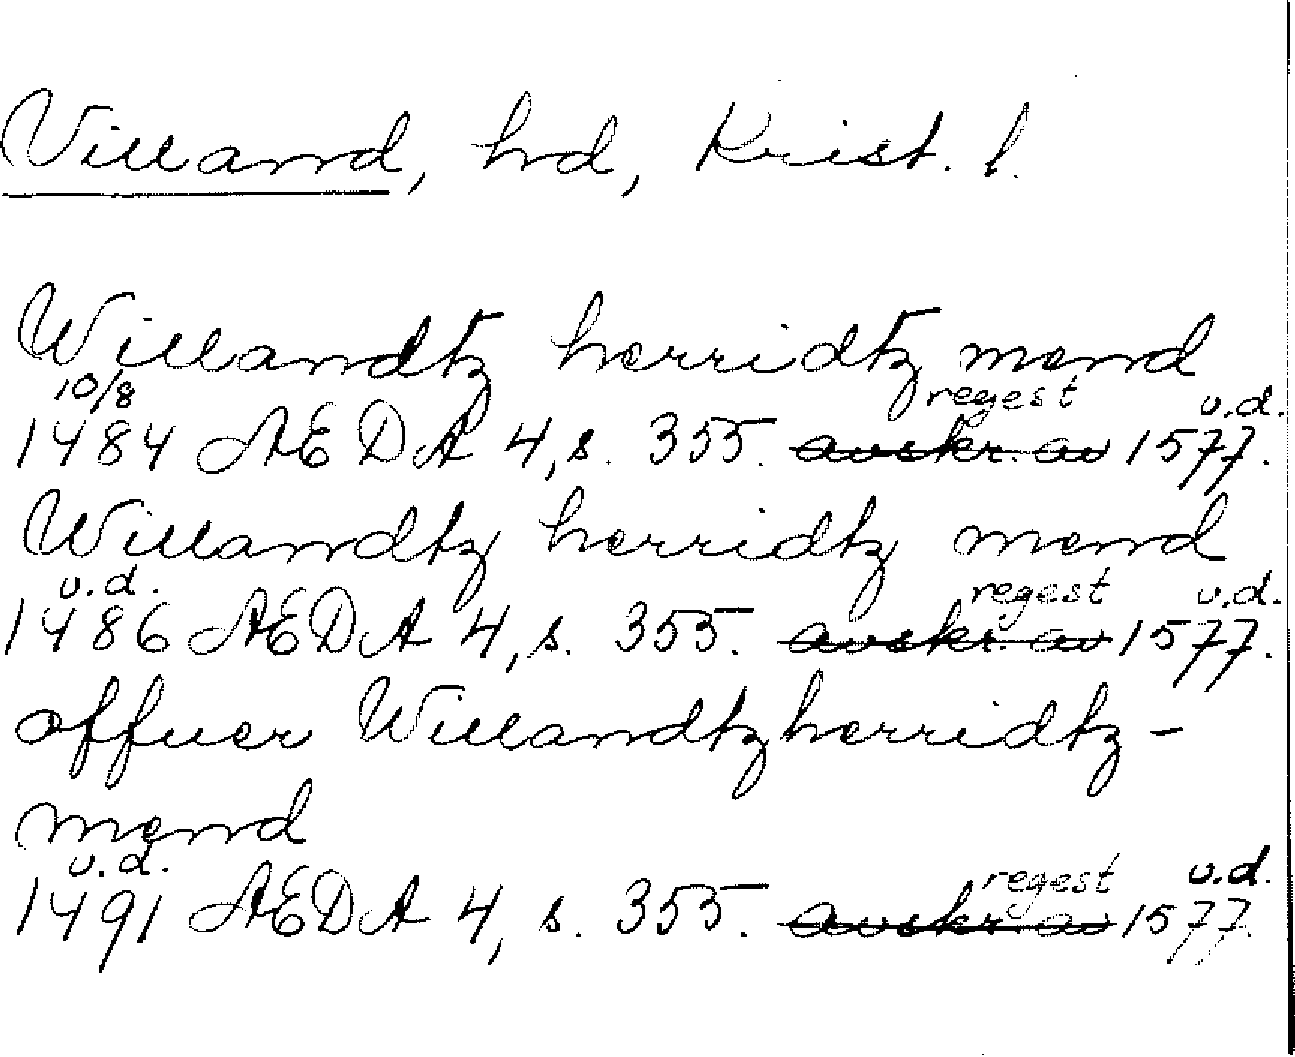 Villand, hd, Krist. l.
Willandtz herridtz mend
10/8 regest u.d.
1484 AEDA 4, s. 355. avskr. av 1577.
Willandtz herridtz mend
u.d. regest u.d.
1486 AEDA 4, s. 355. avskr. av 1577.
offuer Willandtzherridtz-
mend
u.d. regest u.d.
1491 AEDA 4, s. 355. avskr. av 1577.